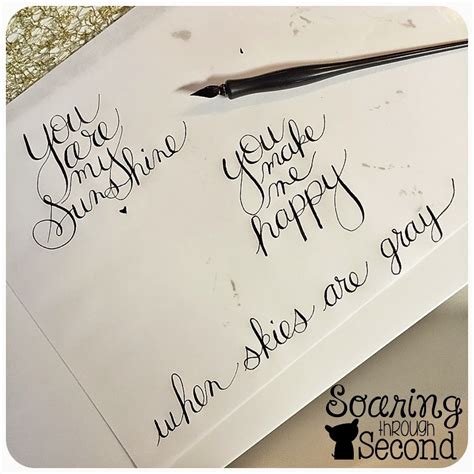 You
are
my
Sunshine
you
make
me
happy
when skies are gray
Soaring
through
Second